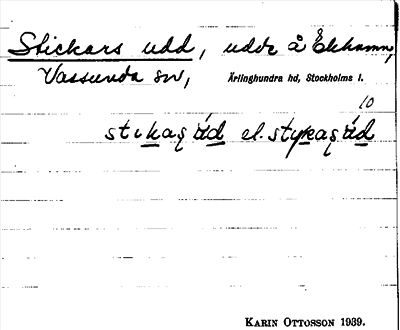 Stickars udd, udde å Ekhamn,
Vassunda sn, Ärlinghundra hd, Stockholms l.
10
stikaş úd el. stykaş úd
KARIN OTTOSSON 1939.